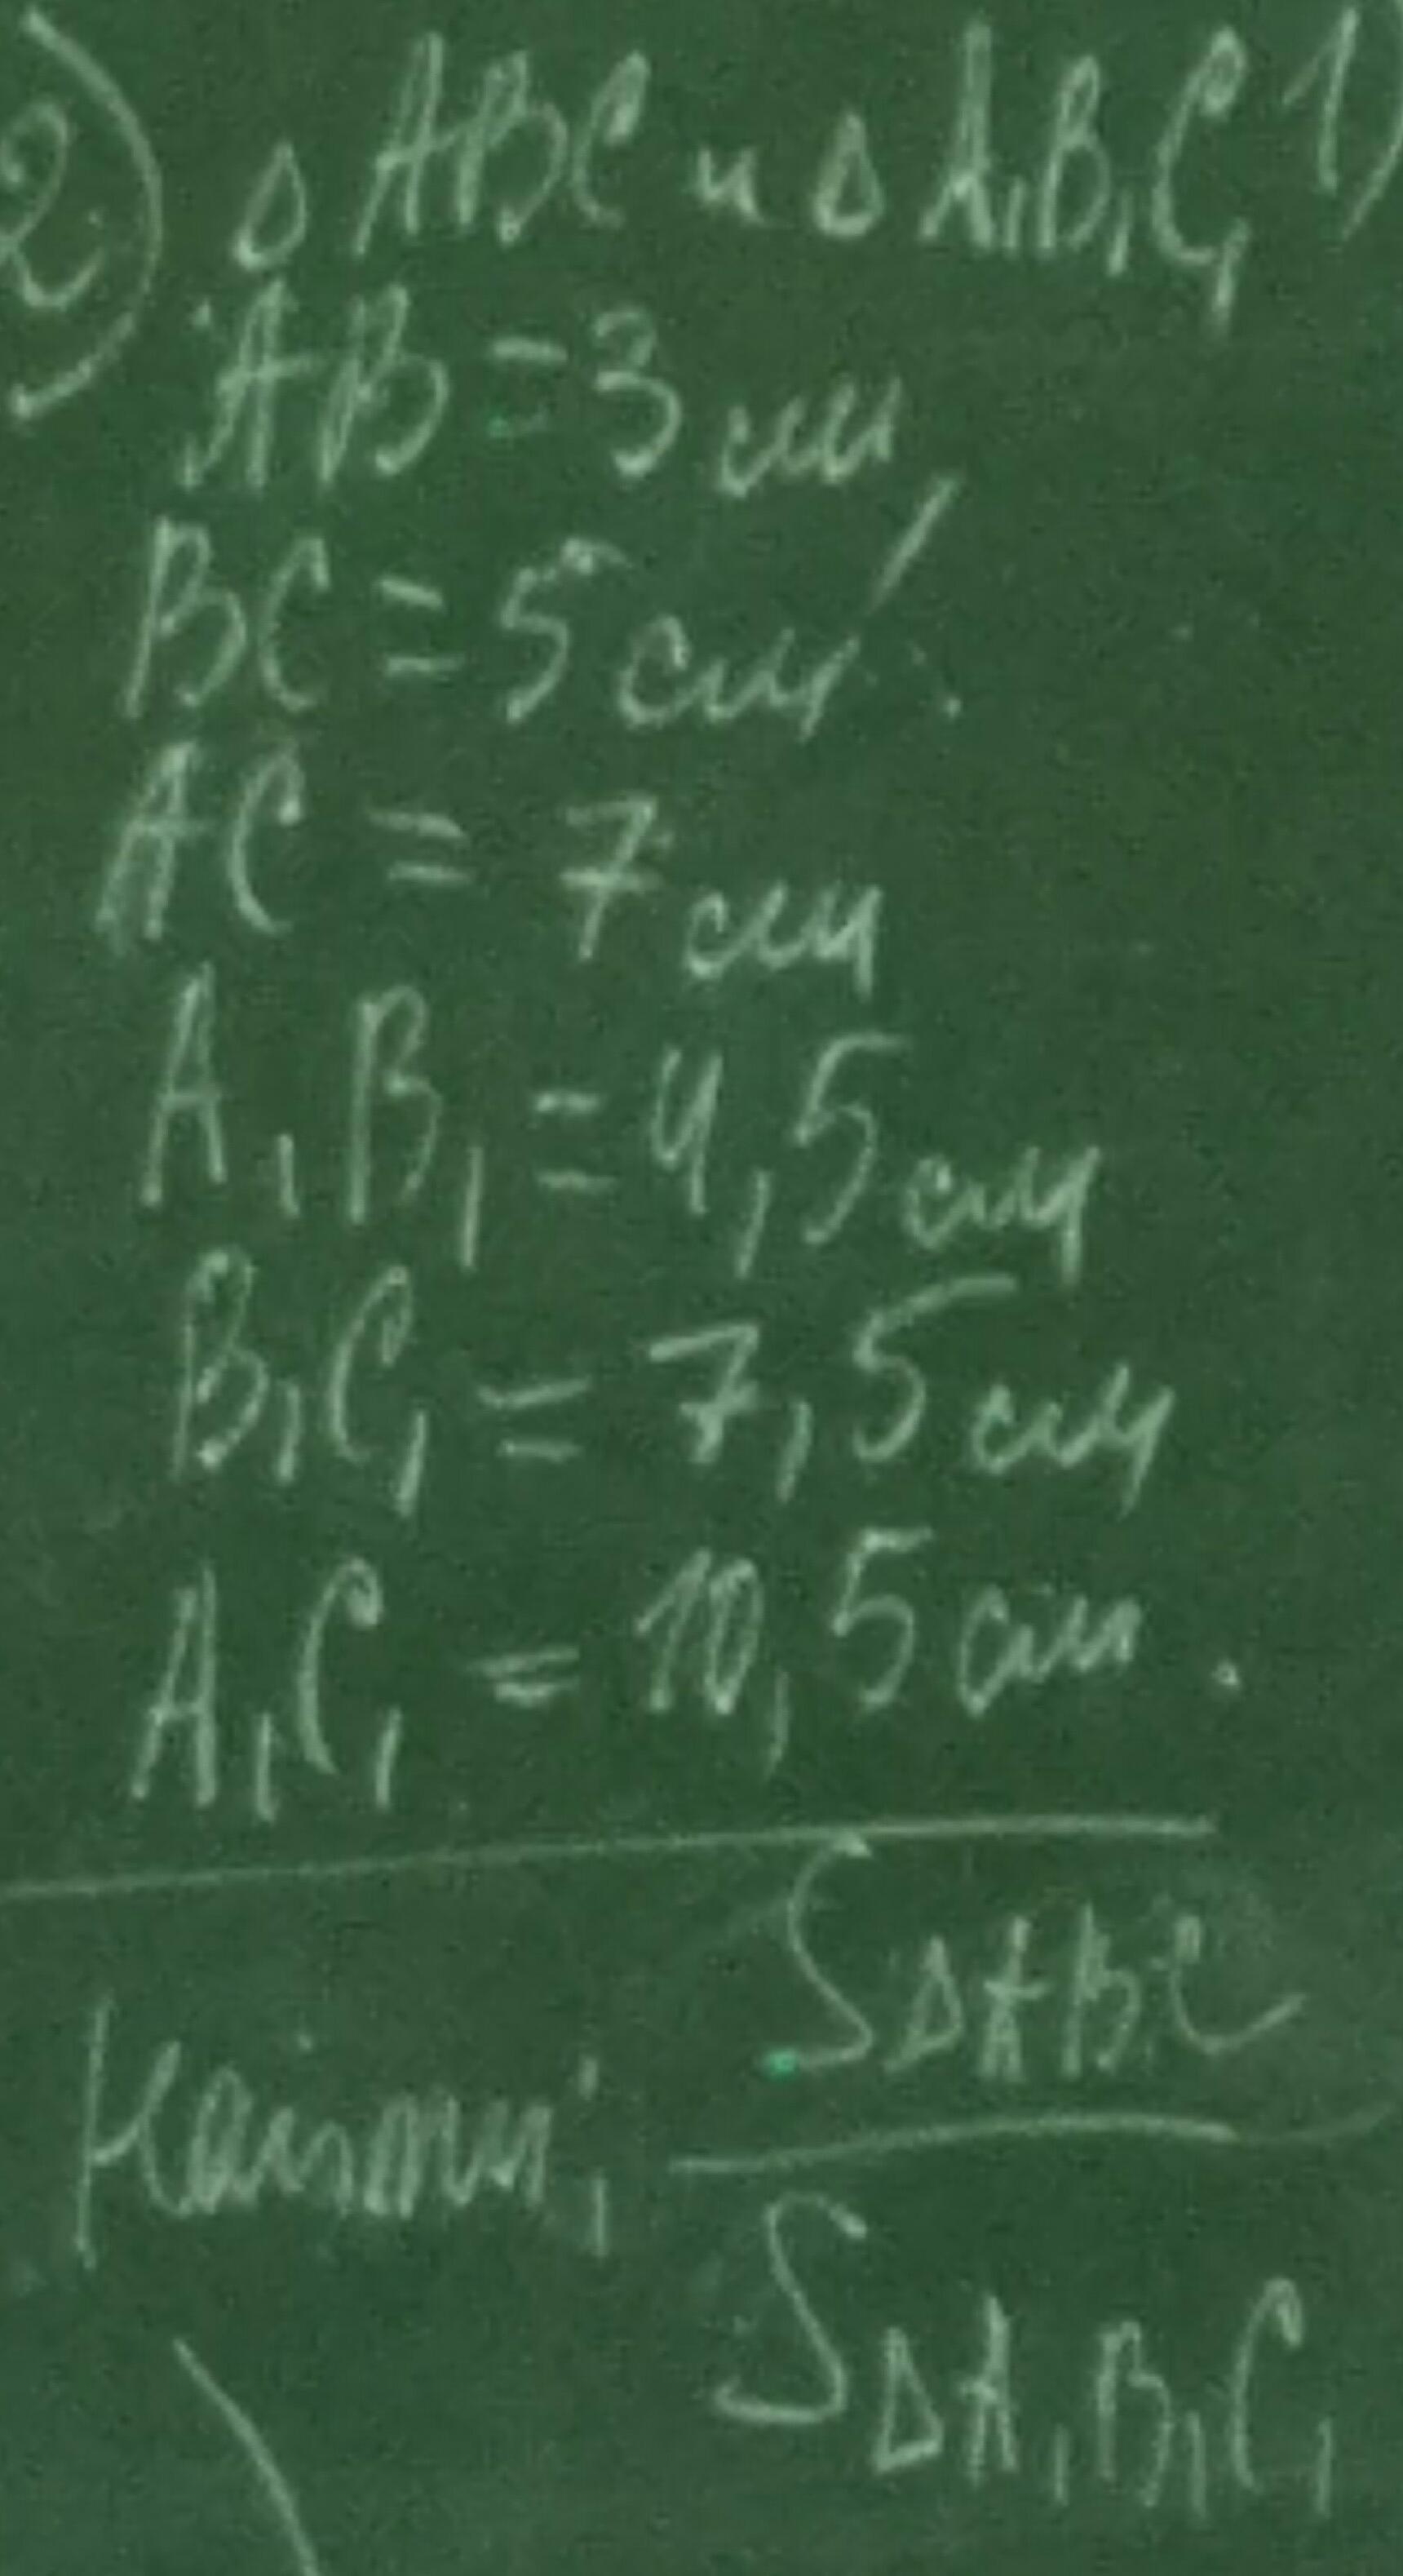 2) △ ABC и △ A₁B₁C₁ 1)
AB = 3 см,
BC = 5 см.
AC = 7 см
A₁B₁ = 4,5 см
B₁C₁ = 7,5 см
A₁C₁ = 10,5 см.
Найти: S△ABC
S△A₁B₁C₁